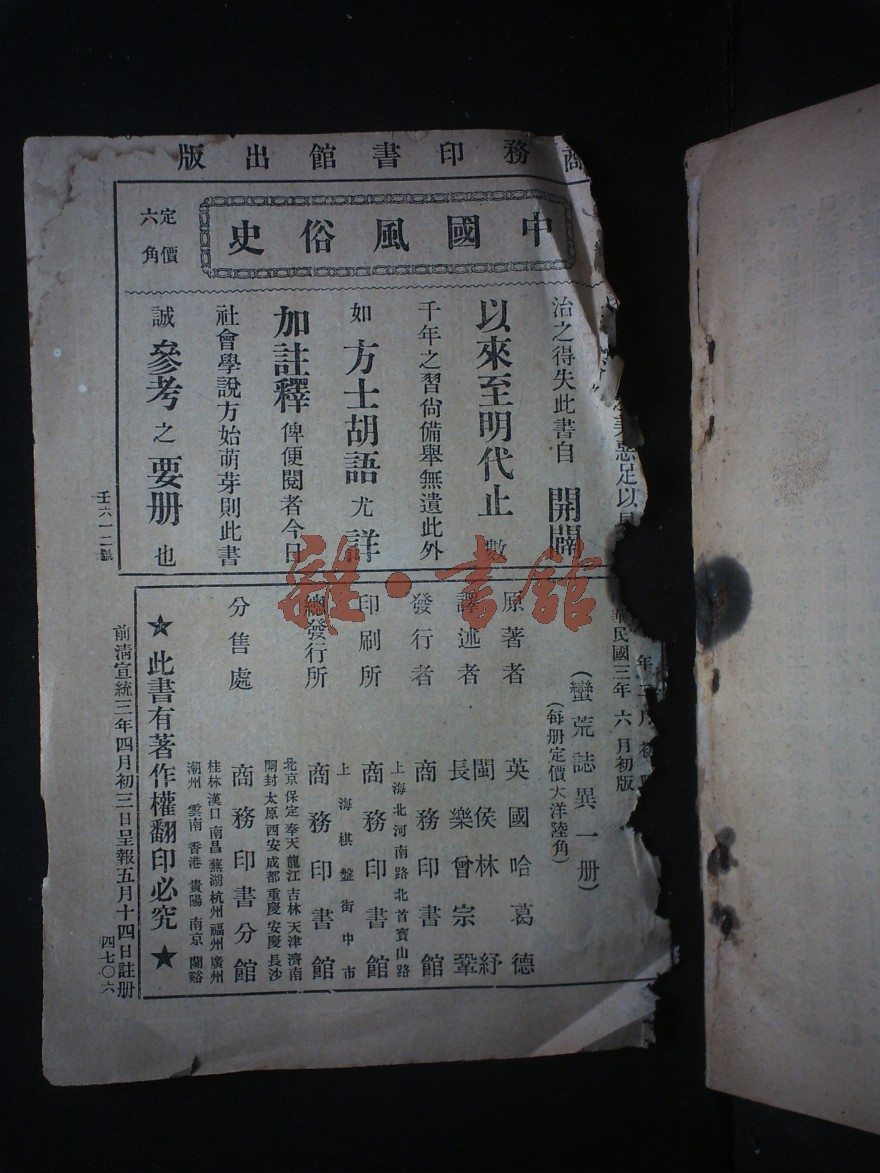 商務印書館出版
中國風俗史
定價
六角
美惡足以
治之得失此書自開闢
以來至明代止數
千年之習尙備舉無遺此外
如方士胡語尤詳
加註釋俾便閱者今日
社會學說方始萌芽則此書
誠參考之要册也
年三月初
民國三年六月初版
(蠻荒誌異一册)
(每册定價大洋陸角)
原著者 英國哈葛德
譯述者 閩侯林紓
長樂曾宗鞏
發行者 商務印書館
上海北河南路北首寶山路
印刷所 商務印書館
上海棋盤街中市
總發行所 商務印書館
北京保定奉天龍江吉林天津濟南
開封太原西安成都重慶安慶長沙
分售處 商務印書分館
桂林漢口南昌蕪湖杭州福州廣州
潮州雲南香港貴陽南京
★此書有著作權翻印必究★
前清宣統三年四月初三日呈報五月十四日註册
四七〇六
雜·書館